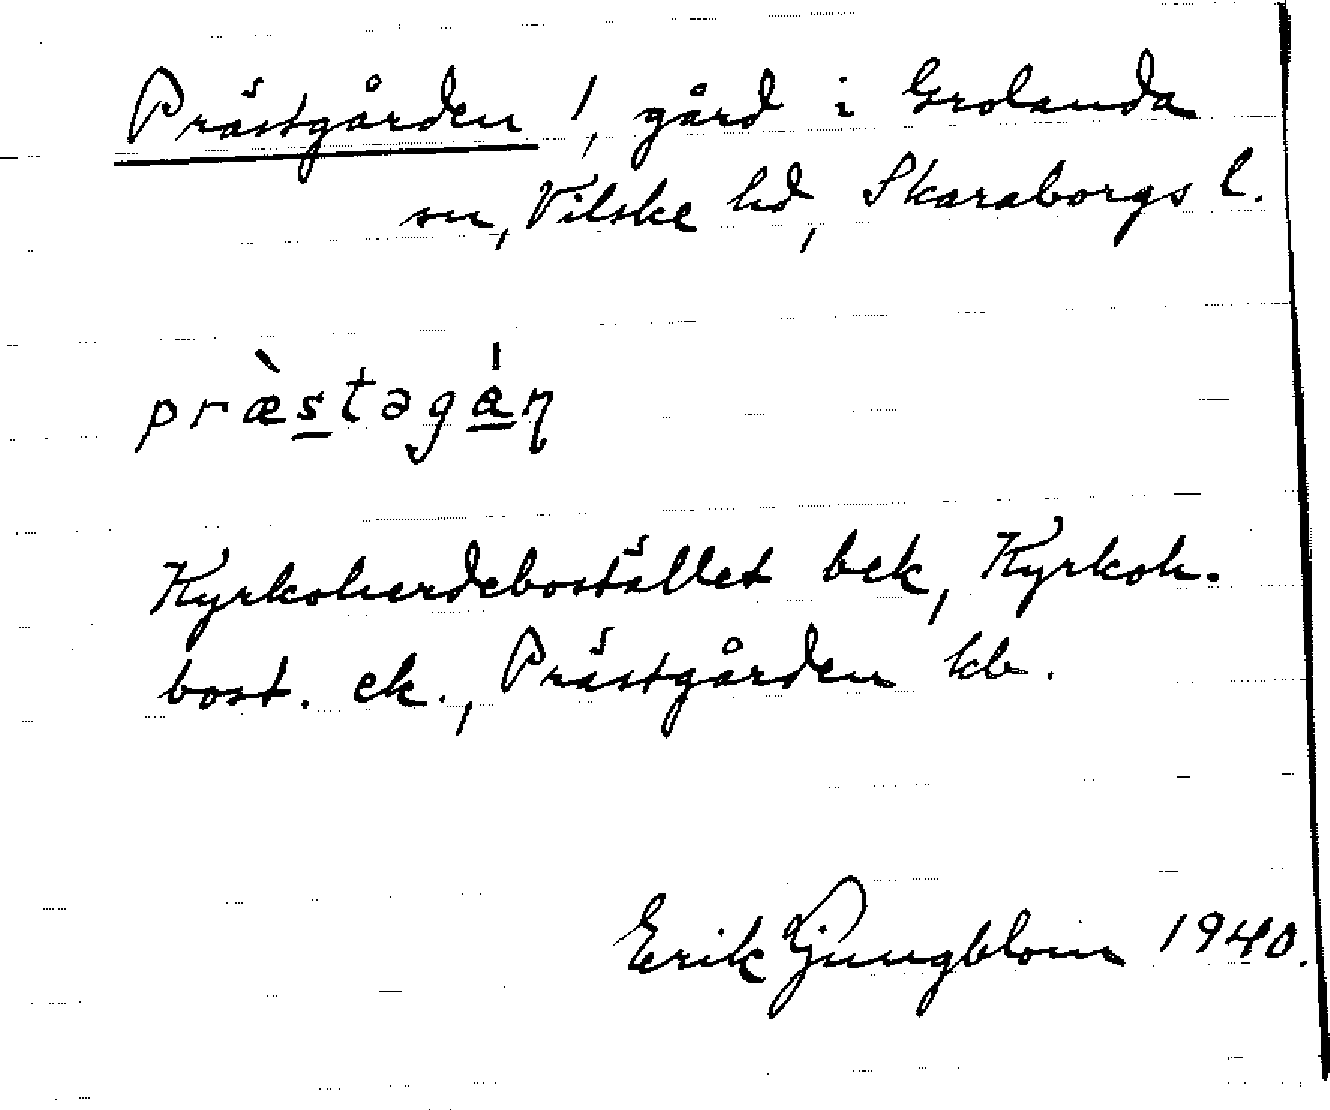 Prästgården !, gård i Grolanda
sn, Vilske hd, Skaraborgs l.
præ̀stəgán
Kyrkoherdebostället bek, Kyrkoh.
bost. ek., Prästgården kb.
Erik Ljungblom 1940.